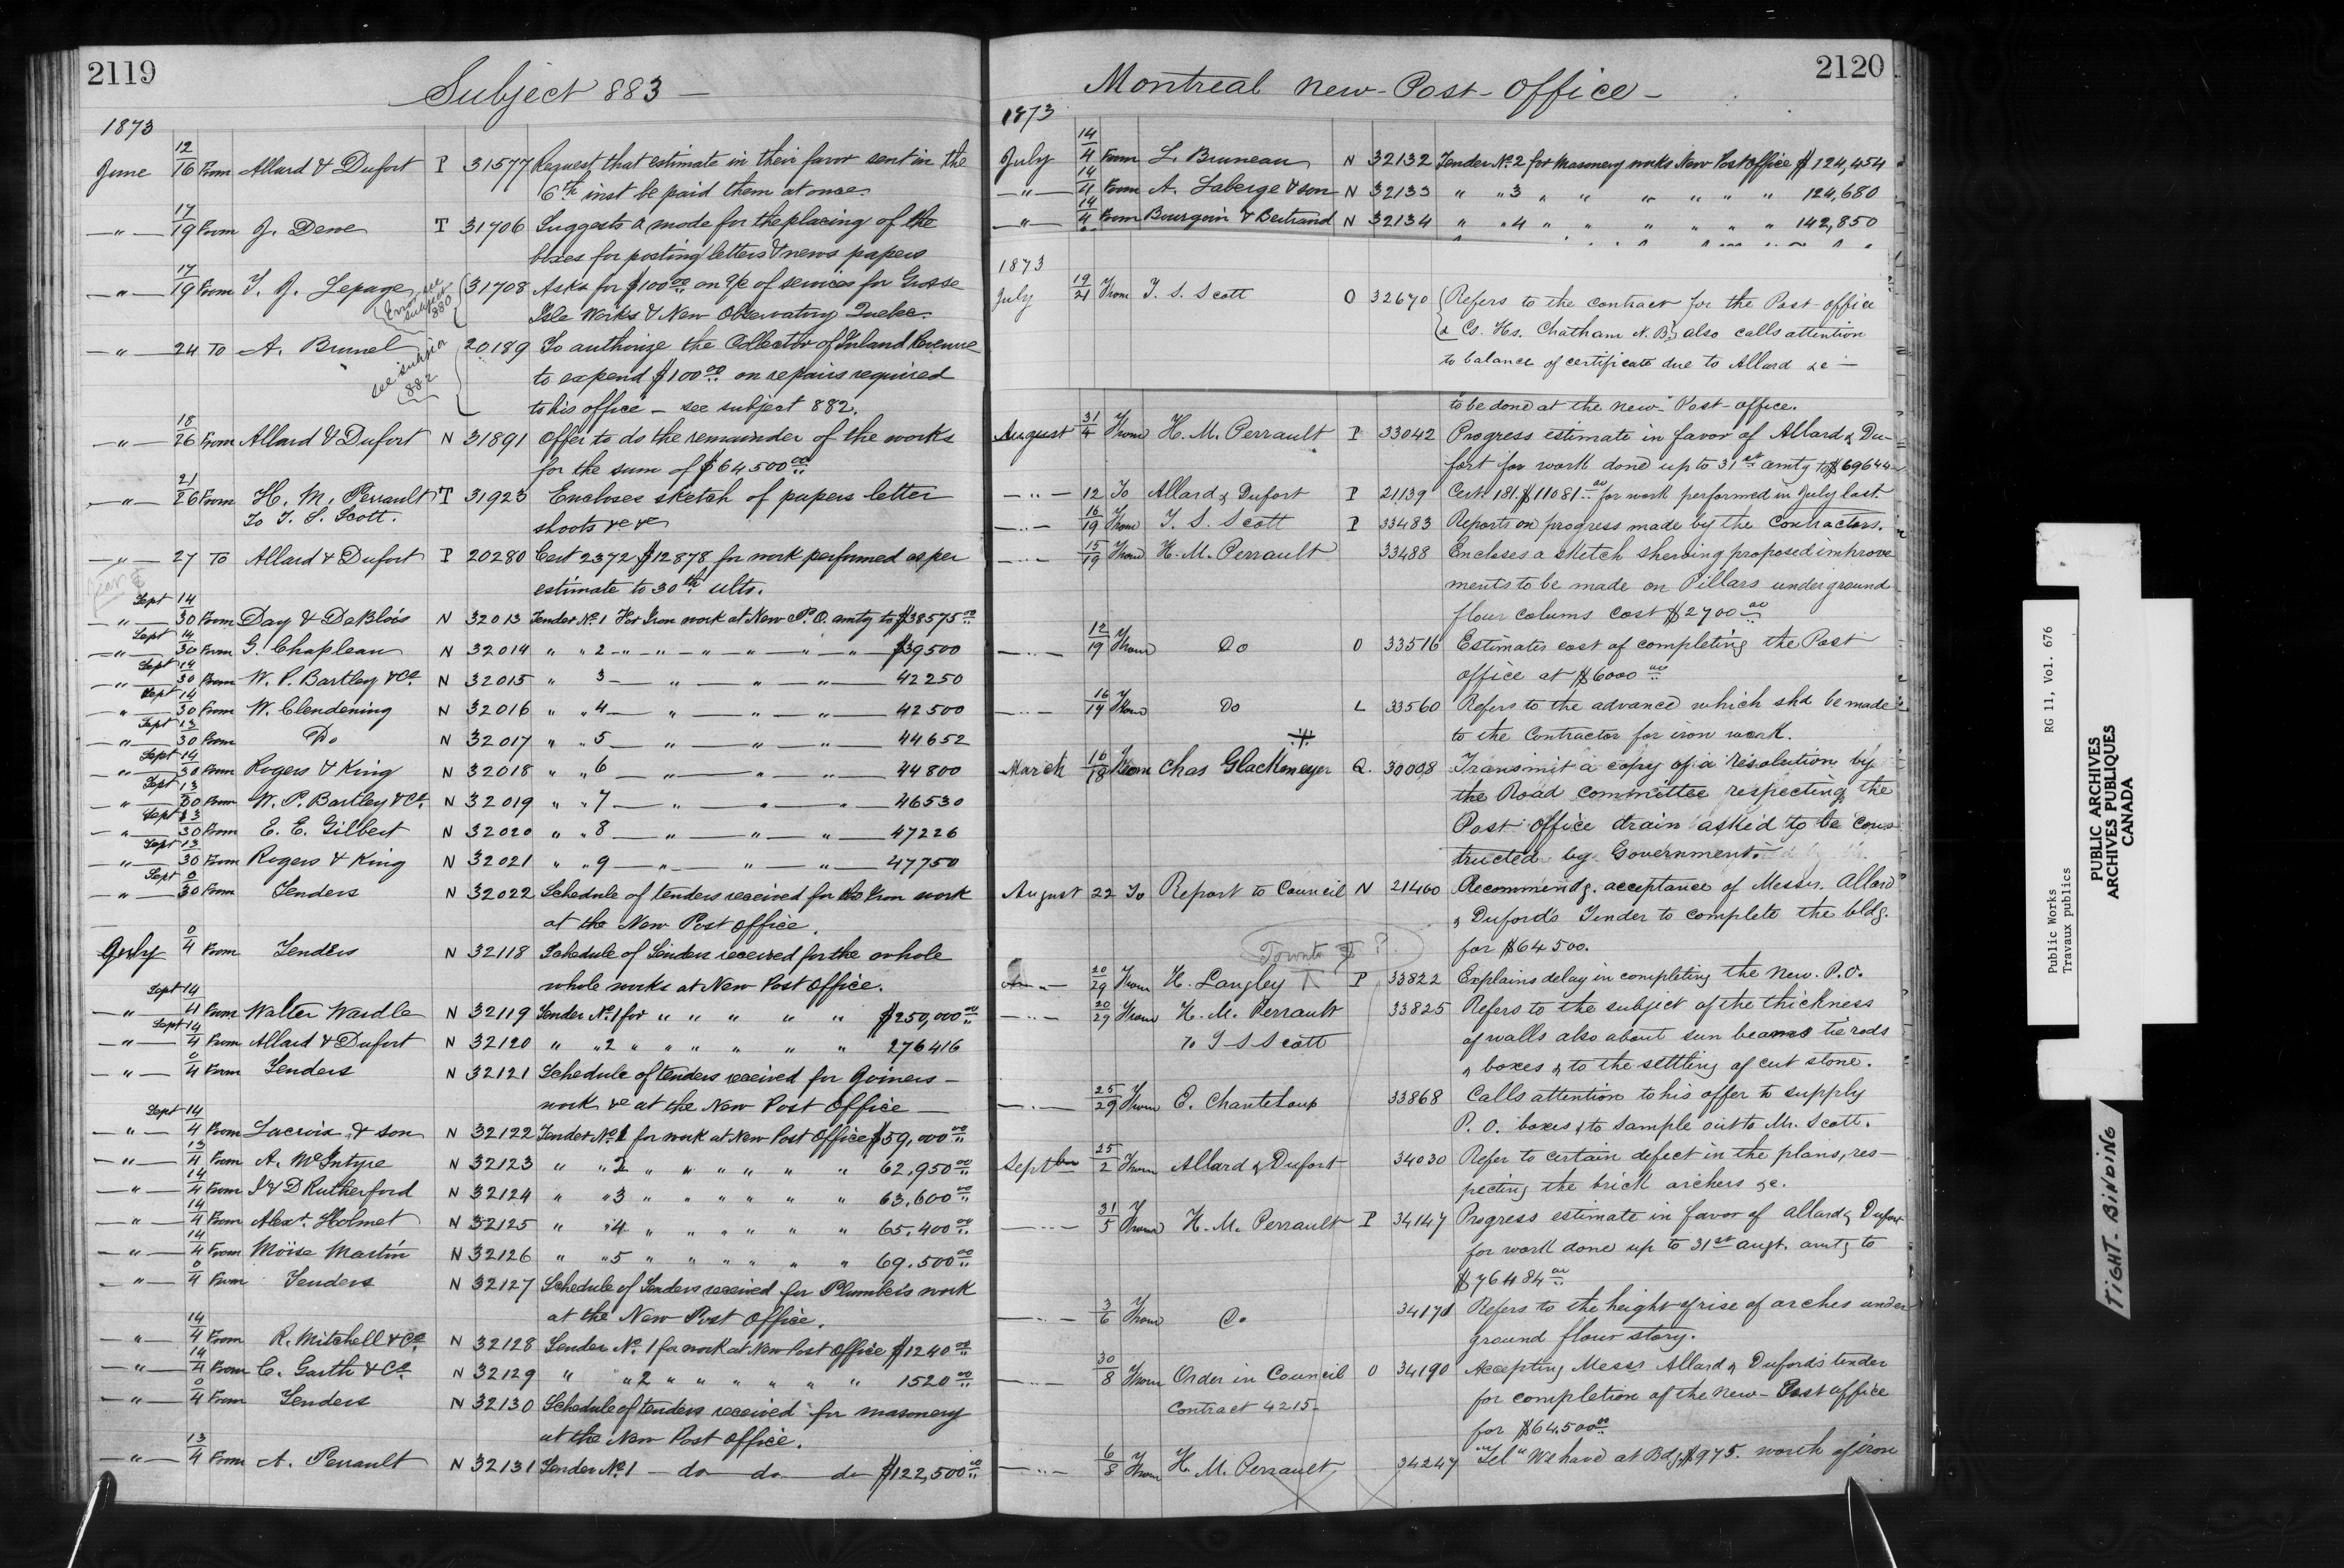 2119
Subject 883 —
1873
June 12/16 From Allard & Dufort P 31577 Request that estimate in their favor sent in the
6th inst be paid them at once.
— " — 17/19 From J. Dewe T 31706 Suggests a mode for the placing of the
boxes for posting letters & news papers
— " — 17/19 From T. J. Lepage 31708 Asks for $100 00 on a/c of services for Grosse
Error see subject 880
Isle Works & New Observatory Quebec.
— " — 24 To A. Brunel 20189 To authorize the Collector of Inland Revenue
see subject 882
to expend $100 00 on repairs required
to his office — see subject 882.
— " — 18/26 From Allard & Dufort N 31891 Offer to do the remainder of the works
for the sum of $64500 00
— " — 21/26 From H. M. Perrault T 31923 Encloses sketch of papers letter
To T. S. Scott. shoots &c &c
— " — 27 To Allard & Dufort P 20280 Cert 2372 $12878, for work performed as per
estimate to 30th ulto.
— " — Sept 14/30 From Day & DeBlois N 32013 Tender No 1 For Iron work at New P. O. amtg to $38575 00
— " — Sept 14/30 From G. Chapleau N 32014 " " 2 — " — " — " — " — " — $39500
— " — Sept 14/30 From W. P. Bartley & Co. N 32015 " 3 — " — " — " — 42250
— " — Sept 14/30 From W. Clendening N 32016 " " 4 — " — " — " — 42500
— " — Sept 13/30 From Do N 32017 " " 5 — " — " — " — 44652
— " — Sept 14/30 From Rogers & King N 32018 " " 6 — " — " — " — 44800
— " — Sept 13/30 From W. P. Bartley & Co. N 32019 " " 7 — " — " — " — 46530
— " — Sept 13/30 From E. E. Gilbert N 32020 " " 8 — " — " — " — 47226
— " — Sept 13/30 From Rogers & King N 32021 " " 9 — " — " — " — 47750
— " — Sept 0/30 From Tenders N 32022 Schedule of tenders received for the Iron work
at the New Post Office.
July 0/4 From Tenders N 32118 Schedule of Tenders received for the whole
whole works at New Post Office.
— " — Sept 14/4 From Walter Wardle N 32119 Tender No 1 for " " " " " $250,000 00
— " — Sept 14/4 From Allard & Dufort N 32120 " " 2 " " " " " " 276416
— " — 0/4 From Tenders N 32121 Schedule of tenders received for Joiners —
work &c at the New Post Office —
— " — Sept 14/4 From Lacroix & son N 32122 Tender No 1 for work at New Post Office $59,000 00
— " — 13/4 From A. McIntyre N 32123 " " 2 " " " " " " 62,950 00
— " — 14/4 From J & D Rutherford N 32124 " " 3 " " " " " " 63,600 00
— " — 14/4 From Alext. Holmet N 32125 " " 4 " " " " " " 65,400 00
— " — 14/4 From Moïse Martin N 32126 " " 5 " " " " " " 69,500 00
— " — 0/4 From Tenders N 32127 Schedule of Tenders received for Plumber's work
at the New Post Office.
— " — 14/4 From R. Mitchell & Co. N 32128 Tender No. 1 for work at New Post Office $1240 00
— " — 14/4 From C. Garth & Co. N 32129 " " 2 " " " " " " 1520 00
— " — 0/4 From Tenders N 32130 Schedule of tenders received for masonery
at the New Post Office.
— " — 13/4 From A. Perrault N 32131 Tender No 1 — do — do — do $122,500 00
2120
Montreal New Post Office —
1873
July 14/4 From L. Bruneau N 32132 Tender No. 2 for Masonery works New Post Office $124,454
— " — 14/4 From A. Laberge & son N 32133 " " 3 " " " " " " 124,680
— " — 14/4 From Bourgoin & Bertrand N 32134 " " 4 " " " " " " 142,850
1873
July 19/21 From T. S. Scott O 32670 Refers to the contract for the Post-office
& Cs. Hs. Chatham N. B., also calls attention
to balance of certificate due to Allard &c —
to be done at the new Post-office.
August 31/4 From H. M. Perrault P 33042 Progress estimate in favor of Allard & Du-
fort for work done up to 31st amtg to $69644
— " — 12 To Allard & Dufort P 21139 Cert 181. $11081 00 for work performed in July last.
— " — 16/19 From T. S. Scott P 33483 Reports on progress made by the Contractors.
— " — 15/19 From H. M. Perrault 33488 Encloses a sketch shewing proposed improve
ments to be made on Pillars underground
flour colums cost $2700 00
— " — 12/19 From Do O 33516 Estimates cost of completing the Post
office at $6000 00
— " — 16/19 From Do L 33560 Refers to the advance which shd be made
to the Contractor for iron work.
March 16/18 From Chas Glackmeyer Q. 30008 Transmit a copy of a resolution by
the Road committee respecting the
Post office drain asked to be cons
tructed by Government.
August 22 To Report to Council N 21460 Recommendg. acceptance of Messrs. Allard
& Duford's Tender to complete the bldg.
for $64500.
Toronto ?
20/29 From H. Langley P 33822 Explains delay in completing the New P.O.
— " — 20/29 From H. M. Perrault 33825 Refers to the subject of the thickness
to T S Scott of walls also about sun beams tie rods
& boxes & to the settling of cut stone.
— " — 25/29 From E. Chanteloup 33868 Calls attention to his offer to supply
P. O. boxes & to sample out to Mr. Scott.
Septber 25/2 From Allard & Dufort 34030 Refer to certain defect in the plans, res-
pecting the brick archers &c.
— " — 31/5 From H. M. Perrault P 34147 Progress estimate in favor of Allard & Dufort
for work done up to 31st augt. amtg to
$76484 00
— " — 3/6 From Do 34171 Refers to the height of rise of arches under
ground flour story.
— " — 30/8 From Order in Council O 34190 Accepting Messrs Allard & Duford's tender
Contract 4215 for completion of the New Post office
for $64,500 00
— " — 6/8 From H. M. Perrault 34247 "Tel" We have at Bdg $975. worth of iron
Public Works RG 11, Vol. 676
Travaux publics
PUBLIC ARCHIVES
ARCHIVES PUBLIQUES
CANADA
TIGHT BINDING